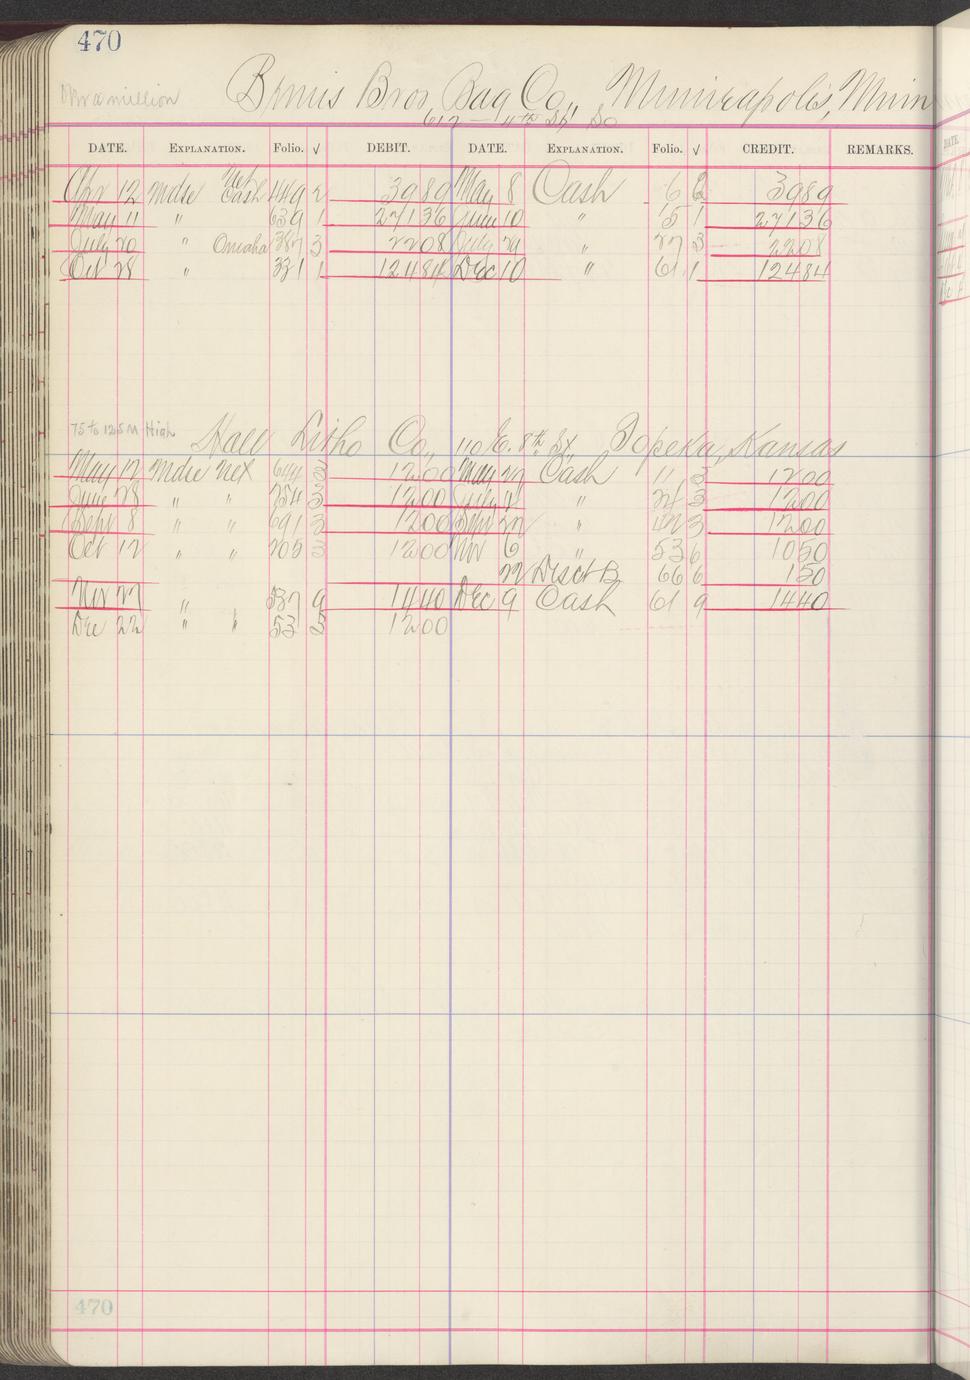 470
million Bemis Bros, Bag Co., Minneapolis, Minn
612 - 4th St So
DATE. EXPLANATION. Folio. √ DEBIT. DATE. EXPLANATION. Folio. √ CREDIT. REMARKS.
Apr 12 Mdse Net Cash 449 2 3989 May 8 Cash 6 2 3989
May 11 " 639 1 27136 June 10 " 15 1 27136
July 20 " Omaha 387 3 2208 July 29 " 27 3 2208
Oct 28 " 331 1 12484 Dec 10 " 61 1 12484
75 to 125 M High Hall Litho Co., 110 E. 8th St., Topeka, Kansas
May 12 Mdse Net 644 3 1200 May 27 Cash 11 3 1200
June 28 " " 254 3 1200 July 11 " 24 3 1200
Sept 8 " " 691 3 1200 Sept 22 " 42 3 1200
Oct 12 " " 205 3 1200 Nov 6 " 53 6 1050
22 Disct B 66 6 150
Nov 27 " 537 9 1440 Dec 9 Cash 61 9 1440
Dec 22 " " 53 3 1200
470